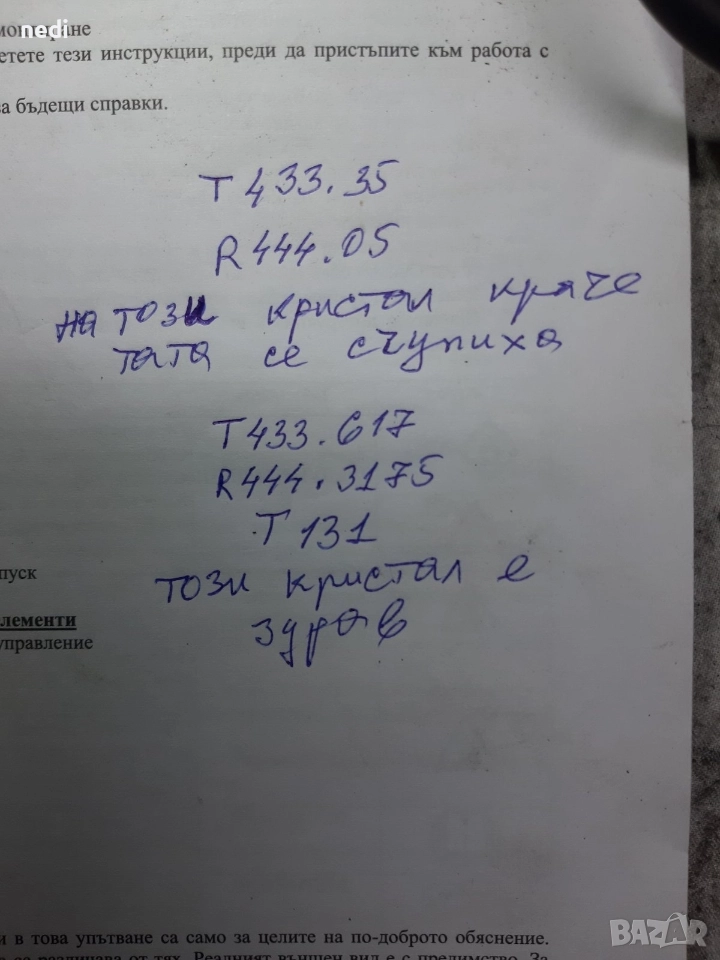 nedi
монтиране
етете тези инструкции, преди да пристъпите към работа с
за бъдещи справки.
T 433.35
R444.05
на този кристал краче
тата се счупиха
T433.617
R444.3175
T 131
този кристал е
здрав
пуск
лементи
управление
и в това упътване са само за целите на по-доброто обяснение.
се различава от тях. Реалният външен вид е с предимство. За
BAZAR